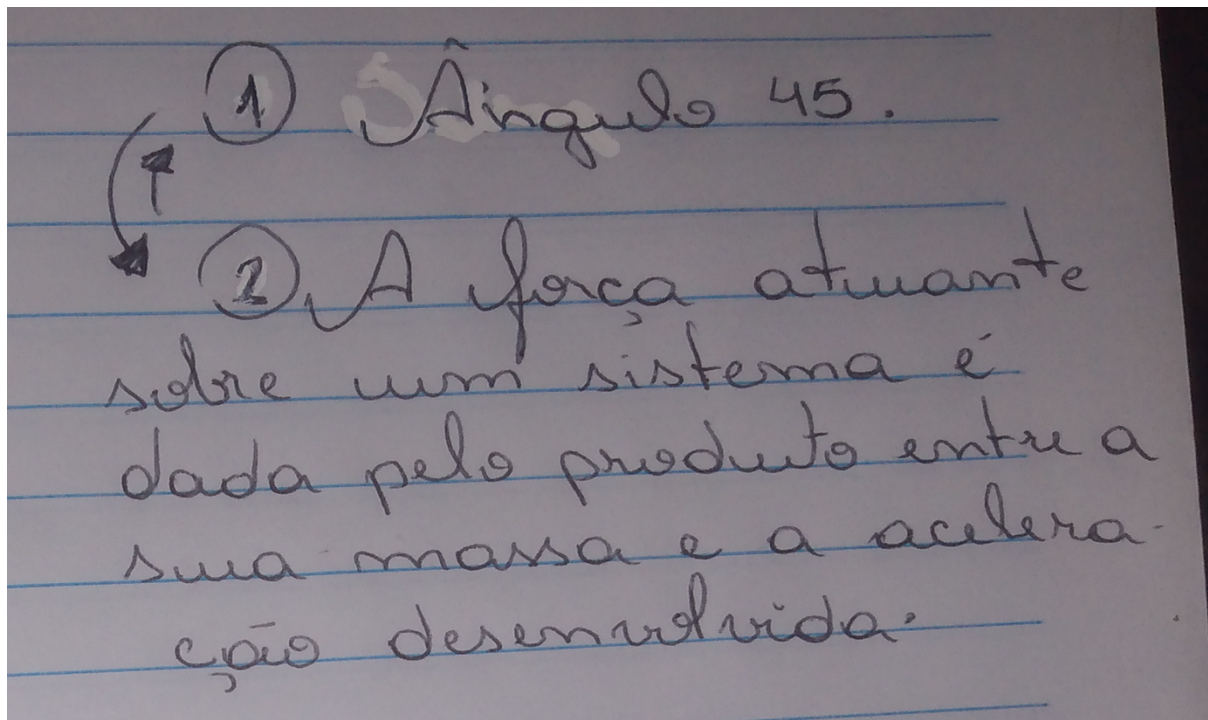 1 Ângulo 45.
2 A força atuante
sobre um sistema é
dada pelo produto entre a
sua massa e a acelera-
ção desenvolvida.